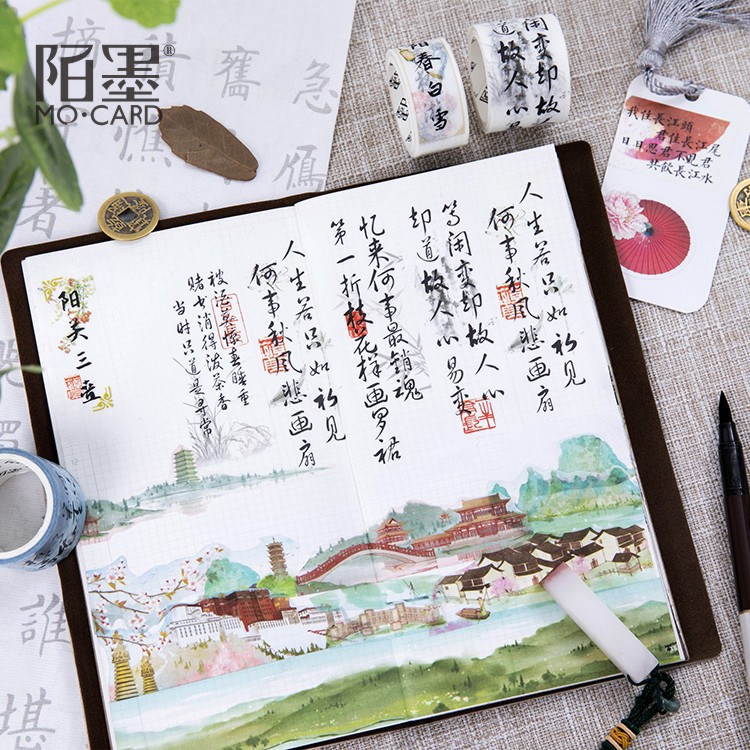 陌墨®
MO·CARD
阳春白雪
闲变却故
故人心
我住長江頭
君住長江尾
日日思君不見君
共飲長江水
人生若只如初见
何事秋风悲画扇
等闲变却故人心
却道故人心易变
忆来何事最銷魂
第一折枝花样画罗裙
人生若只如初见
何事秋风悲画扇
被酒莫惊春睡重
赌书消得泼茶香
当时只道是寻常
阳关三叠
急
著
誰
堪